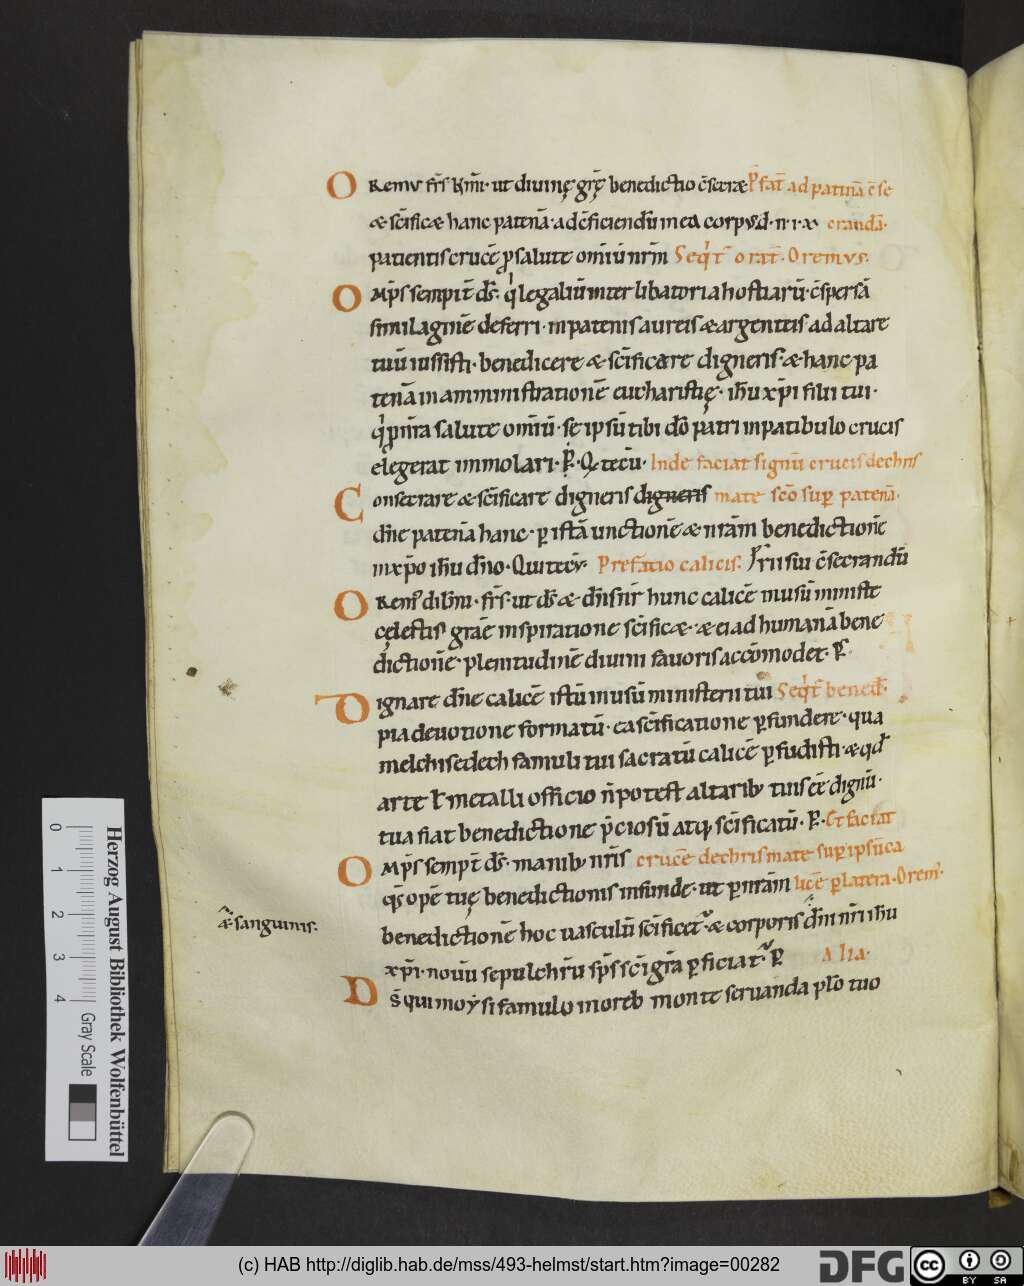 Oremu fr̄s k̄mi· ut diuinę grę̄ benedictio c̄secræ p̄fat̄ ad patenā c̄se
& sc̄ificæ hanc patenā· ad c̄ficiendū in ea corpus d·n·i·x crandā·
patientis crucē p salute om̄iū nr̄m Seqͥt̄ orat̄· Oremus·
Omp̄s sempit̄ ds̄· qͥ legaliū inter libatoria hostiarū· c̄spersā
similaginē deferri· in patenis aureis & argenteis· ad altare
tuū iussisti· benedicere & sc̄ificare digneris· & hanc pa
tenā in amministrationē eucharistię· ih̄u xp̄i filii tui·
qͥ p nr̄a salute om̄iū· se ipsū tibi dō patri in patibulo crucis
elegerat immolari· P̄· Q tecū· Inde faciat signū crucis de chris
Consecrare & sc̄ificare digneris digneris mate sc̄o sup patenā·
dn̄e patenā hanc· p istā unctionē & nr̄am benedictionē
in xp̄o ih̄u dn̄o· Qui tecū· Prefatio calicis· frii sui c̄secrandū
Orem dilm̄i· fr̄s· ut ds̄ & dn̄s nr̄ hunc calicē in usū ministe
cęlestis gr̄æ inspiratione sc̄ificæ· & ei ad humanā bene
dictionē· plenitudinē diuini fauoris accōmodet· P̄
Dignare dn̄e calicē istū in usū ministerii tui Seqͥt̄ bened̄·
pia deuotione formatū· ea sc̄ificatione pfundere· qua
melchisedech famuli tui sacratū calicē pfudisti· & qd̄
arte ł metalli officio n̄ potest altarib; tuis eē dignū·
tua fiat benedictione p̄ciosū atq; sc̄ificatū· P̄· Et faciat
Omp̄s sempt̄ ds̄· manib; nr̄is crucē de chrismate sup ipsū ca
qs̄ opē tuę benedictionis infunde· ut p nr̄am licē p latera· Orem·
& sanguinis·
benedictionē hoc uasculū sc̄ificet̄· & corporis dn̄i nr̄i ih̄u
xp̄i· nouū sepulchrū sp̄s sc̄i gr̄a pficiat· P̄ Alia·
Ds̄ qui moysi famulo in oreb monte seruanda plo tuo
Herzog August Bibliothek Wolfenbüttel
0 1 2 3 4 Gray Scale
(c) HAB http://diglib.hab.de/mss/493-helmst/start.htm?image=00282
DFG
cc BY SA